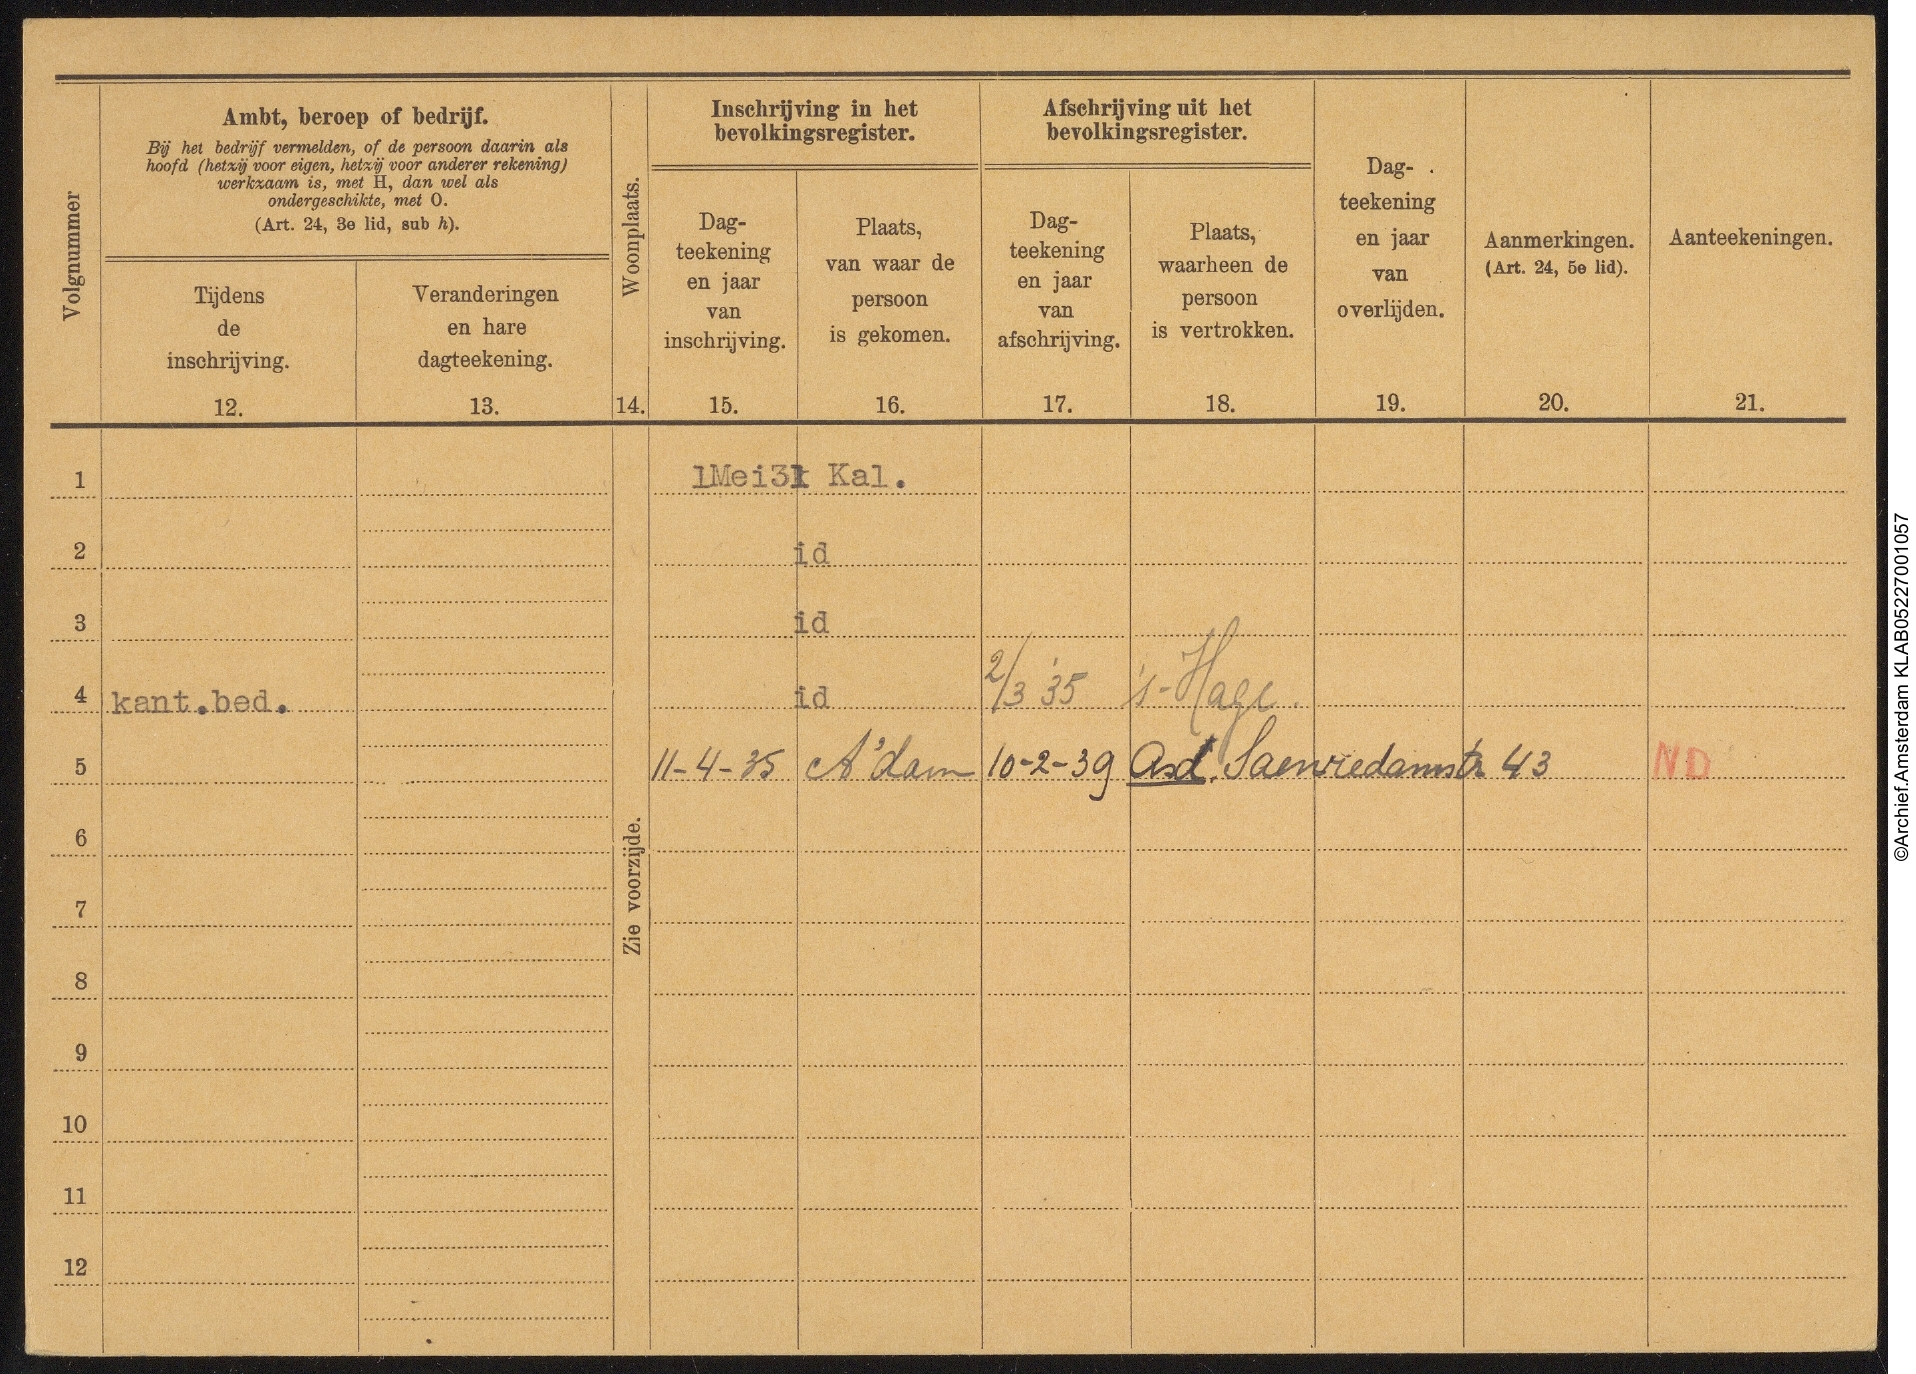 Volgnummer
Ambt, beroep of bedrijf.
Bij het bedrijf vermelden, of de persoon daarin als
hoofd (hetzij voor eigen, hetzij voor anderer rekening)
werkzaam is, met H, dan wel als
ondergeschikte, met O.
(Art. 24, 3e lid, sub h).
Tijdens
de
inschrijving.
12.
Veranderingen
en hare
dagteekening.
13.
Woonplaats.
14.
Inschrijving in het
bevolkingsregister.
Dag-
teekening
en jaar
van
inschrijving.
15.
Plaats,
van waar de
persoon
is gekomen.
16.
Afschrijving uit het
bevolkingsregister.
Dag-
teekening
en jaar
van
afschrijving.
17.
Plaats,
waarheen de
persoon
is vertrokken.
18.
Dag-
teekening
en jaar
van
overlijden.
19.
Aanmerkingen.
(Art. 24, 5e lid).
20.
Aanteekeningen.
21.
1 1Mei31 Kal.
2 id
3 id
4 kant.bed. id 2/3 '35 's-Hage.
5 11-4-35 A'dam 10-2-39 Asd. Saenredamstr 43 ND
6
7
8
9
10
11
12
Zie voorzijde.
©Archief.Amsterdam KLAB05227001057